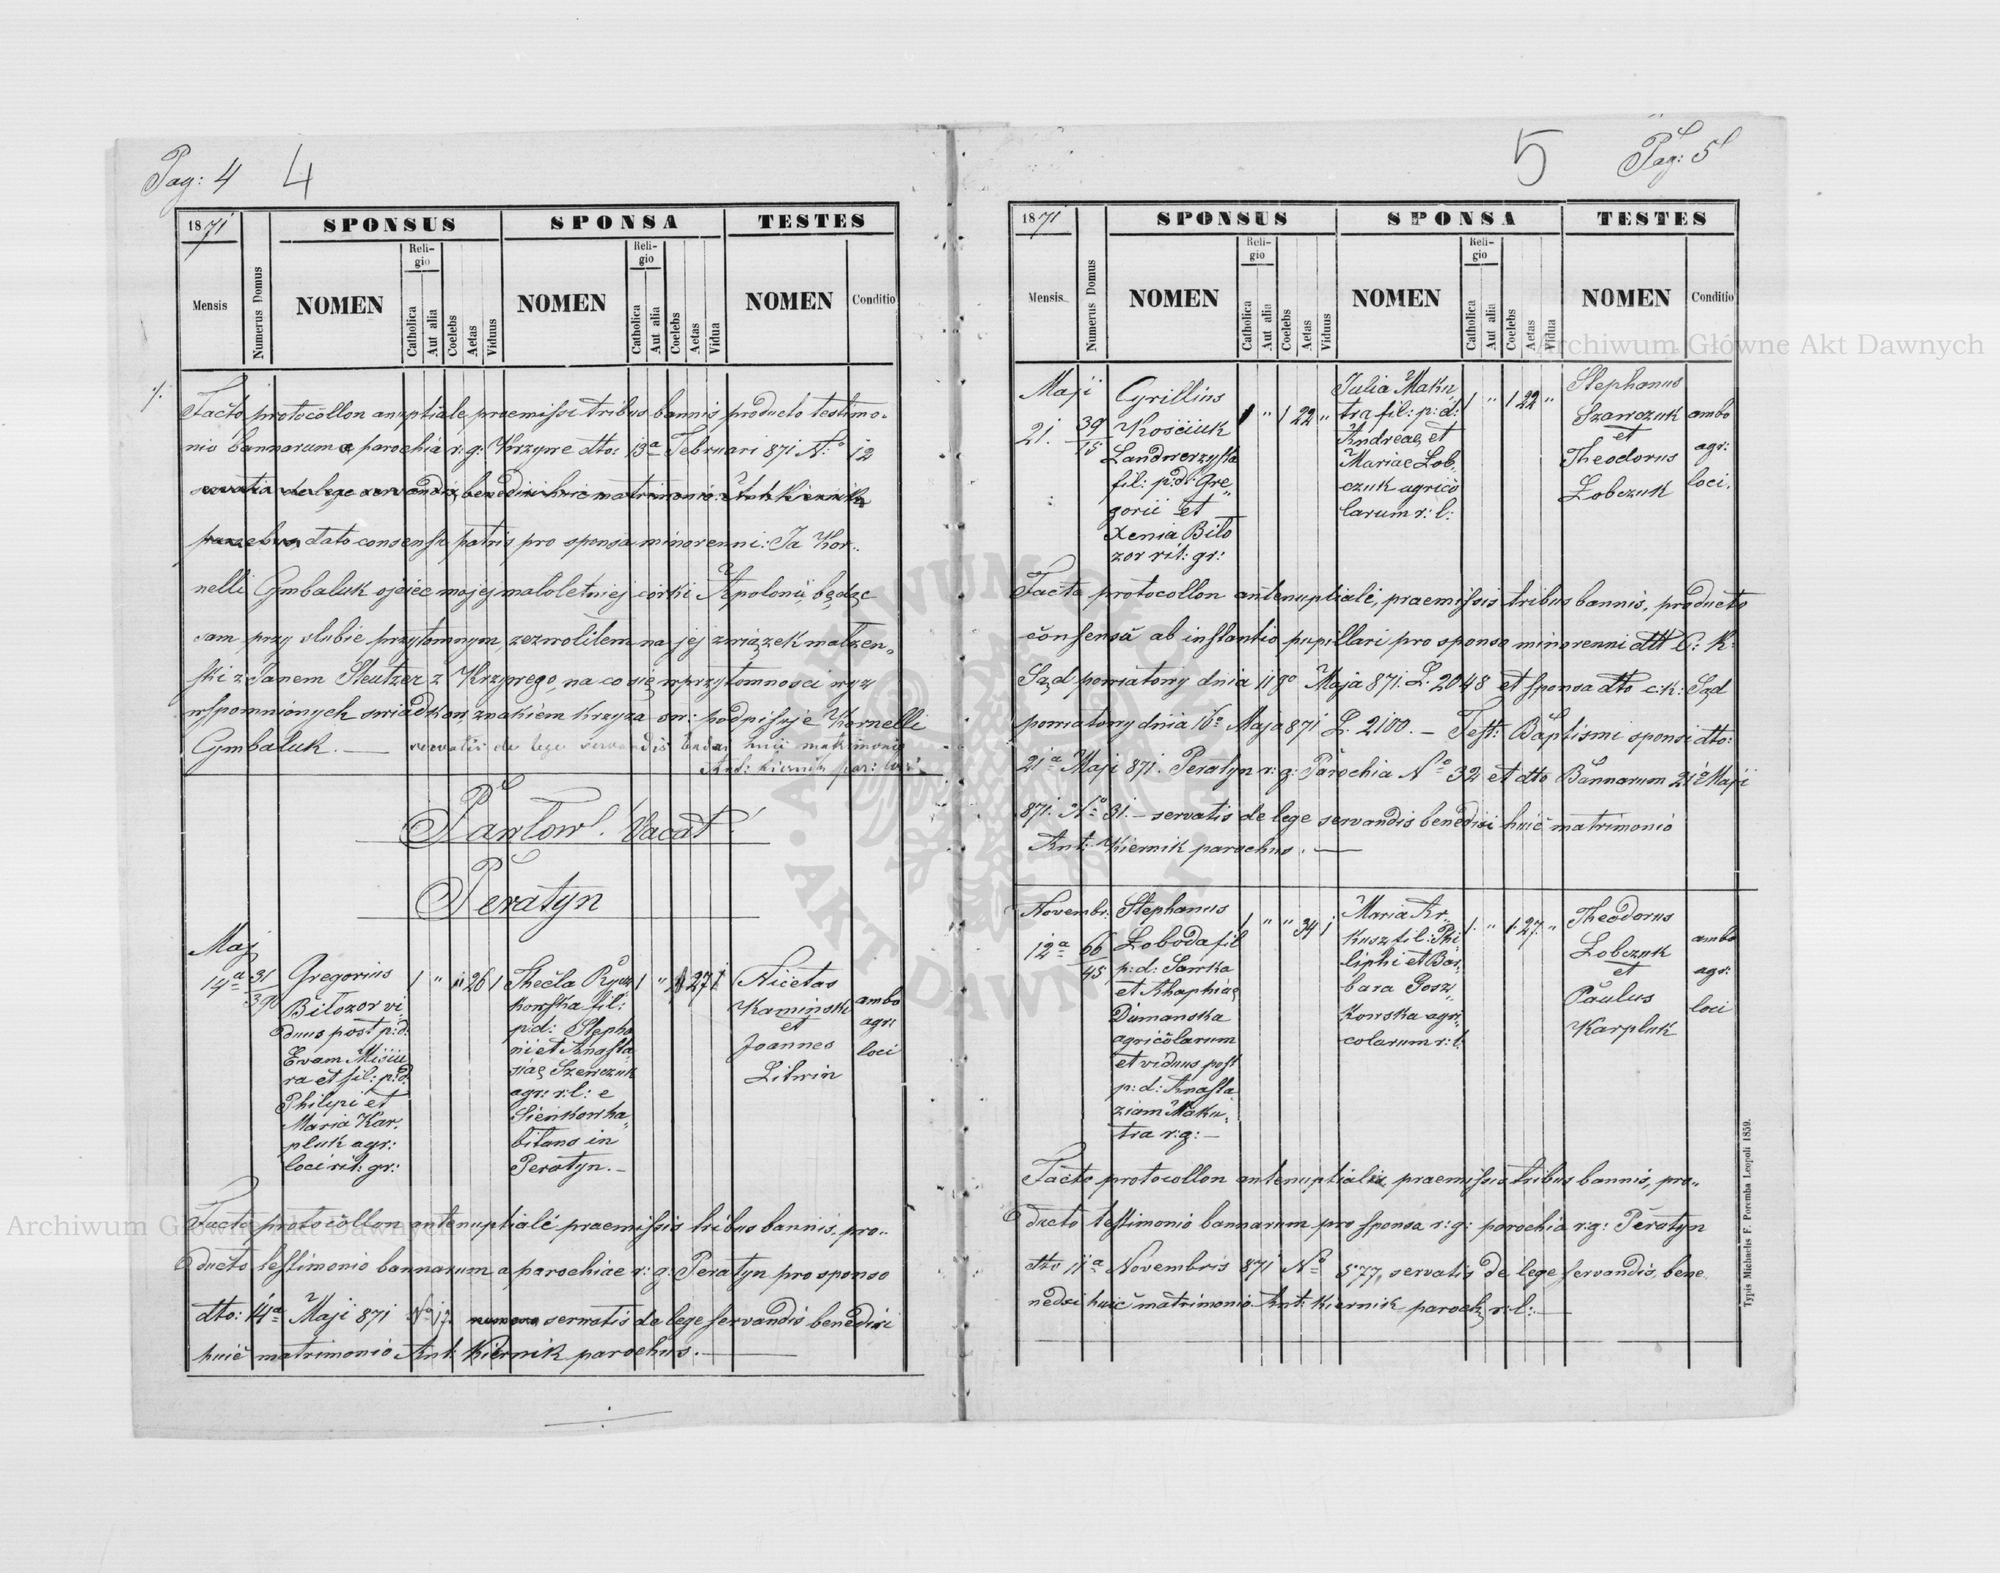 Pag: 4 4
1871
SPONSUS SPONSA TESTES
Mensis
Numerus Domus
NOMEN
Religio
Catholica
Aut alia
Coelebs
Aetas
Viduus
NOMEN
Religio
Catholica
Aut alia
Coelebs
Aetas
Vidua
NOMEN
Conditio
Facto protocollon anuptiale, praemissi tribus bannis producto testimo-
nio bannarum a parochia r: g: Krzywe dto: 13a Februari 871 No: 12
servatis de lege servandis, benedixi huic matrimonio: Ant: Kiernik
dato consensu patris pro sponsa minorenni: Ja Kor-
nelli Cymbaluk ojciec mojej maloletniej córki Apolonii, będąc
sam przy slubie przytomnym, zezwolilem na jej związek małżen-
ski z Janem Steutzer z Krzywego, na co się w przytomnosci wyz
wspomnionych swiadkow znakiem krzyza sw: podpisuje Kornelli
Cymbaluk. — servatis de lege servandis huic matrimonio
Ant: Kiernik par: loci
Pawlow. Vacat.
Peratyn
Maj
14a 31/390
Gregorius
Bilozor vi-
duus post p: d:
Evam Misiu
ra et fil: p: d:
Philipi et
Maria Kar-
pluk agr:
loci rit: gr:
1 " " 26 1
Thecla
kowska fil:
p: d: Stepha
ni et Anasta
siae Szewczuk
agr: r: l: e
Sienkow ha-
bitans in
Peratyn. —
1 " 27 1
Nicetas
Kaminski
et
Joannes
Litwin
ambo
agr:
loci
Facto protocollon antenuptiale praemissis tribus bannis, pro-
ducto testimonio bannarum a parochiae r: g: Peratyn pro sponso
dto: 14a Maji 871 No 17. servatis de lege servandis benedixi
huic matrimonio Ant: Kiernik parochus. —
5 Pag: 5
1871
SPONSUS SPONSA TESTES
Mensis
Numerus Domus
NOMEN
Religio
Catholica
Aut alia
Coelebs
Aetas
Viduus
NOMEN
Religio
Catholica
Aut alia
Coelebs
Aetas
Vidua
NOMEN
Conditio
Maji
21. 39/15
Cyrillius
Kościuk
Landwerzysta
fil: p: d: Gre-
gorii et
Xenia Bilo
zor rit: gr:
1 " 1 22 "
Julia Maku-
tra fil: p: d:
Andreae et
Mariae Lob-
czuk agrico
larum r: l:
1 " 1 22 "
Stephanus
Szawczuk
et
Theodorus
Lobczuk
ambo
agr:
loci.
Facto protocollon antenuptiale, praemissis tribus bannis, producto
consensu ab instantio pupillari pro sponsa minorenni dtt C: K:
Sąd powiatowy dnia 11go Maja 871. L. 2048 et sponsa dto c: k: Sąd
powiatowy dnia 16o Maja 871 L. 2100. — Test: Baptismi sponsi dto:
21a Maji 871. Peratyn r: g: Parochia No 32 et dto Bannarum 21 Maji
871. No 31. — servatis de lege servandis benedixi huic matrimonio
Ant: Kiernik parochus. —
Novembr:
12a 66/45
Stephanus
Loboda fil
p: d: Sawka
et Ahaphiae
Dumanska
agricolarum
et viduus post
p: d: Anasta
ziam Maku-
tra r: g: —
1 " " 34 1
Maria Ar-
kusz fil: Phi-
liphi et Bar-
bara Gosz-
kowska agri-
colarum r: l:
1. " 1. 27. "
Theodorus
Lobczuk
et
Paulus
Karpluk
ambo
agr:
loci
Facto protocollon antenuptiale praemissis tribus bannis, pro-
ducto testimonio bannarum pro sponsa r: g: parochia r: g: Peratyn
dto 11a Novembris 871 No 577, servatis de lege servandis, bene
nedixi huic matrimonio. Ant: Kiernik paroch r: l: —
Typis Michaelis F. Poremba Leopoli 1859.
Archiwum Główne Akt Dawnych
Archiwum Główne Akt Dawnych
ARCHIWUM GŁÓWNE · AKT DAWNYCH ·